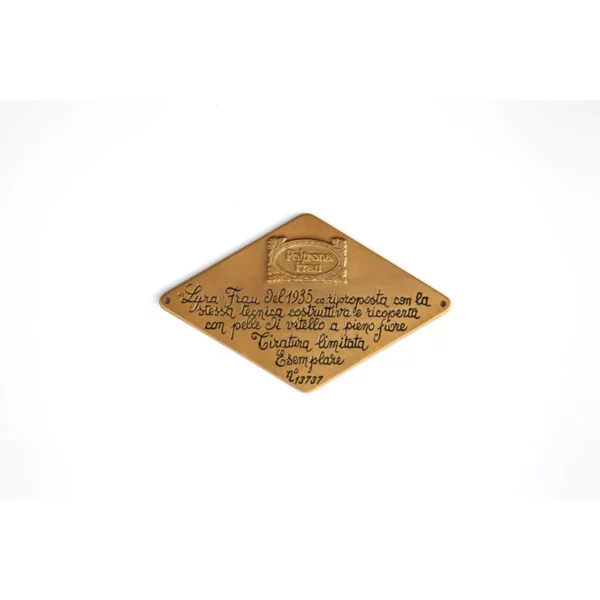 Poltrona
Frau
"Lyra" Frau del 1935 riproposta con la
stessa tecnica costruttiva e ricoperta
con pelle di vitello a pieno fiore
Tiratura limitata
Esemplare
n° 13737